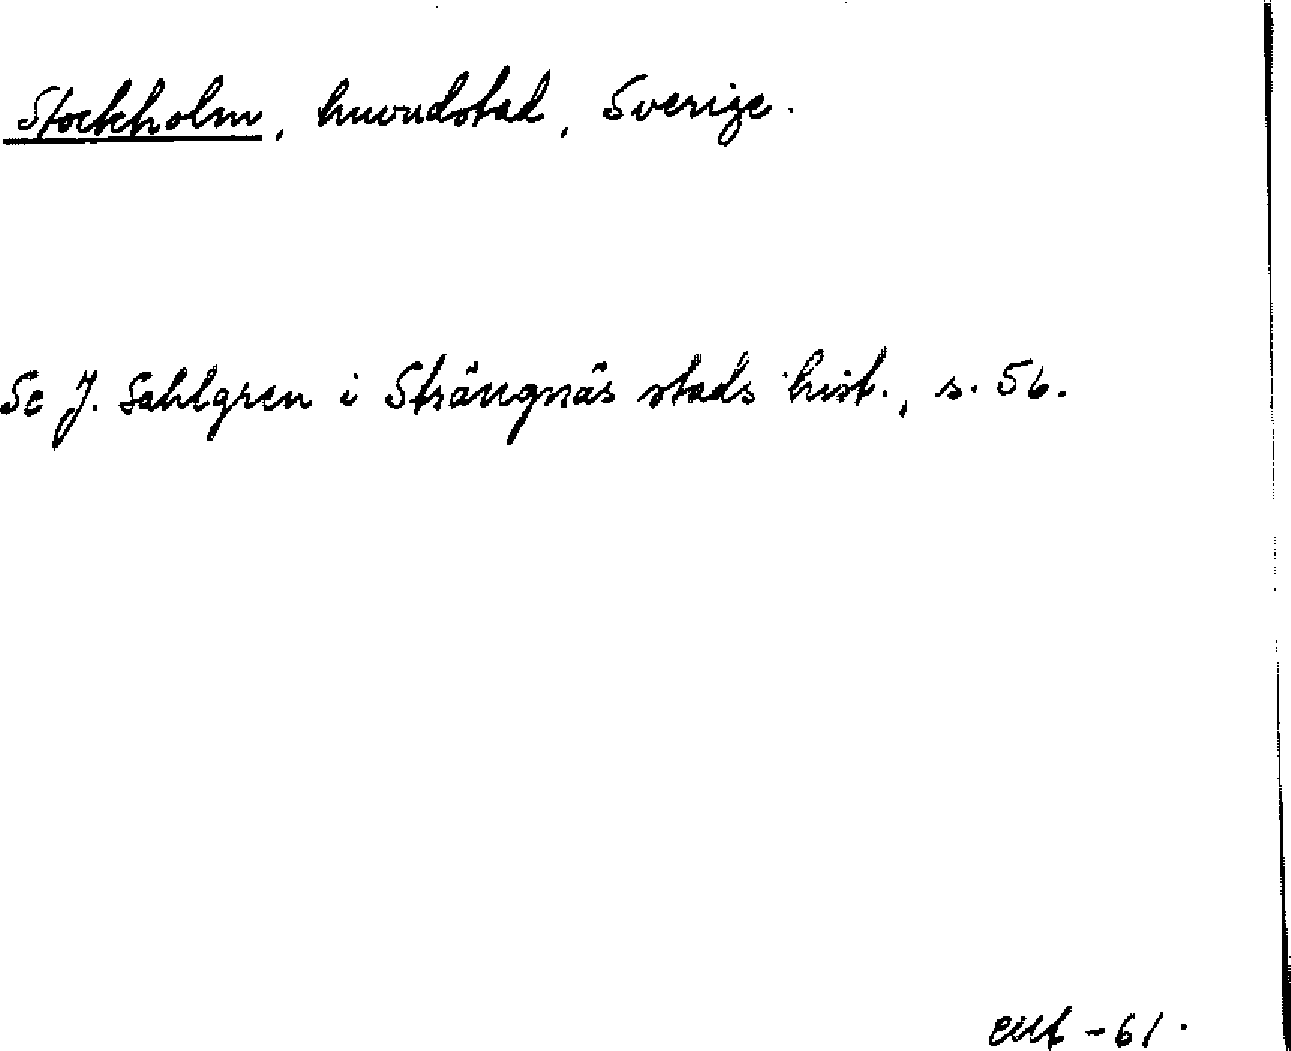 Stockholm, huvudstad, Sverige.
Se J. Sahlgren i Strängnäs stads hist., s. 56.
-61.